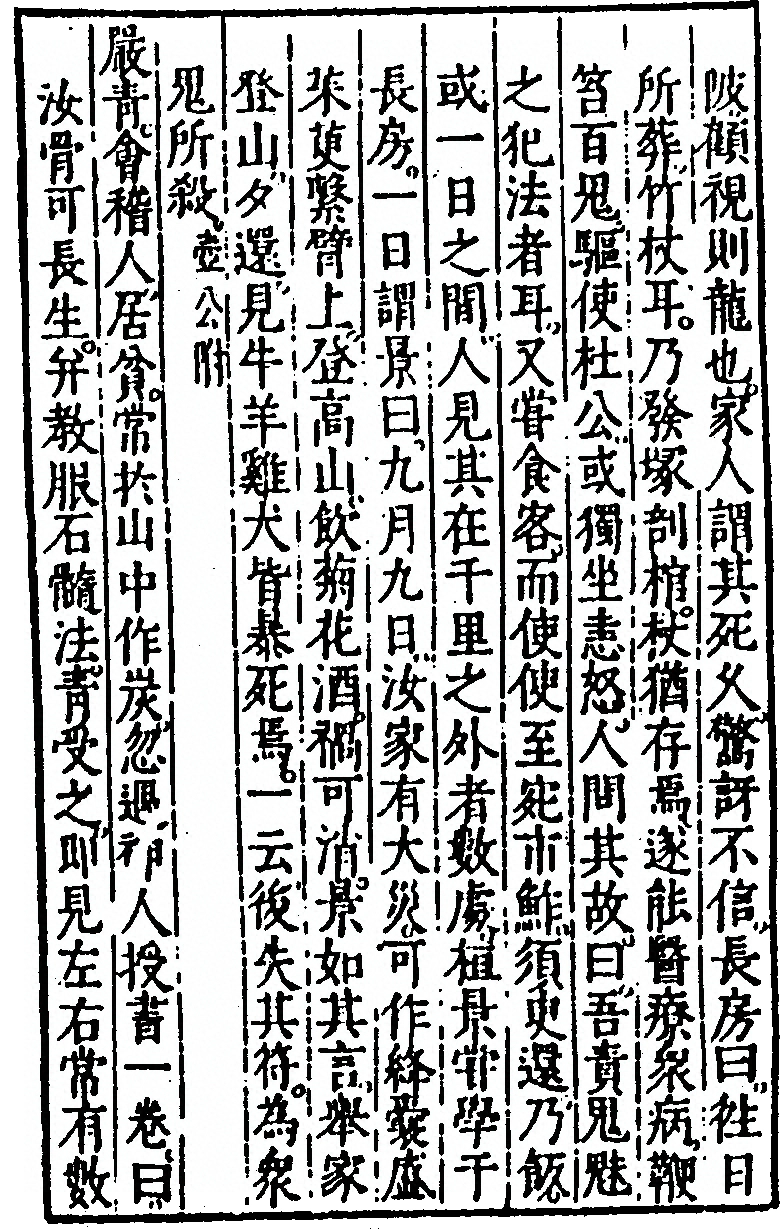 陂顧視則龍也家人謂其死久驚訝不信長房曰往日
所葬竹杖耳乃發塚剖棺杖猶存焉遂能醫療衆病鞭
笞百鬼驅使社公或獨坐恚怒人問其故曰吾責鬼魅
之犯法者耳又甞食客而使使至宛市鮓須臾還乃飯
或一日之間人見其在千里之外者數處桓景甞學于
長房一日謂景曰九月九日汝家有大災可作絳囊盛
茱萸繫臂上登高山飲菊花酒禍可消景如其言舉家
登山夕還見牛羊雞犬皆暴死焉一云後失其符為衆
鬼所殺壺公附
嚴青會稽人居貧常扵山中作炭忽遇神人授書一卷曰
汝骨可長生并教服石髓法青受之即見左右常有數